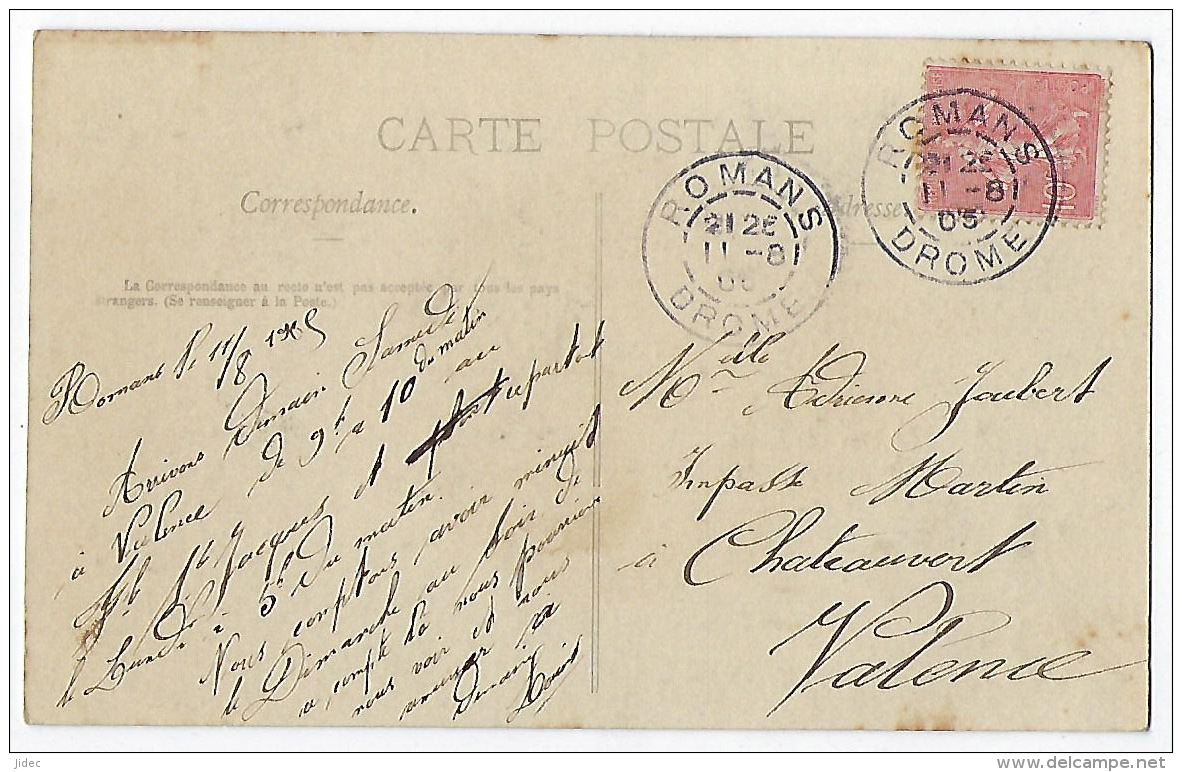 CARTE POSTALE
Correspondance.
Adresse
La Correspondance au recto n'est pas acceptée par tous les pays
étrangers. (Se renseigner à la Poste.)
ROMANS
21 25
11 -8
05
DROME
ROMANS
21 25
11 -8
05
DROME
10
Romans le 11/8 1905
Arrivons Demain Samedi
à Valence de 9h à 10 du matin
au
fb St Jacques et repartons
le Lundi à 5h du matin.
Nous comptons avoir minuit
le Dimanche au soir di
a compte là nous pourrions
nous voir et nous
amuser
Demain
Melle Adrienne Joubert
Impasse Martin
à Chateauvert
Valence
jidec
delcampe.net